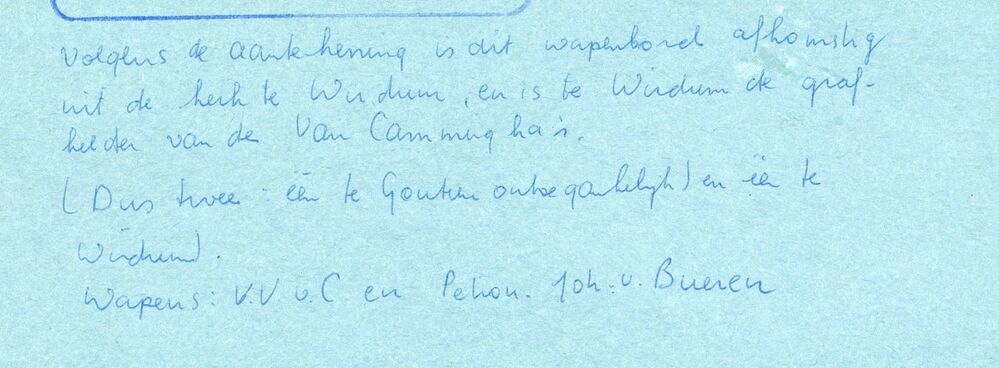 Volgens de aantekening is dit wapenbord afkomstig
uit de kerk te Wirdum, en is te Wirdum de graf-
kelder van de Van Cammingha's.
(Dus twee: één te Goutum ontoegankelijk) en één te
Wirdum).
Wapens: V.V v.C en Petron. Joh. v. Bueren